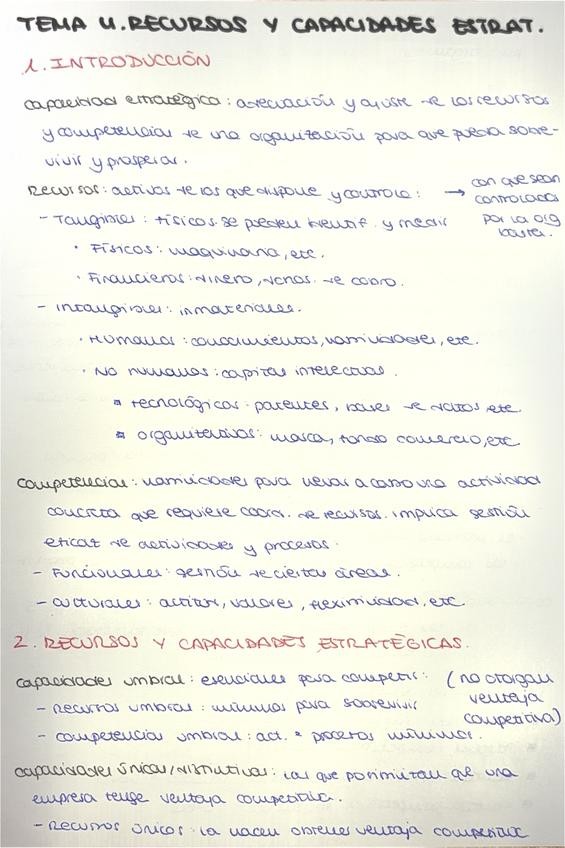 TEMA 4. RECURSOS Y CAPACIDADES ESTRAT.
1. INTRODUCCIÓN
capacidad estratégica: adecuación y ajuste de los recursos
y competencias de una organización para que pueda sobre-
vivir y prosperar.
Recursos: activos de los que dispone y controla: → con que sean
controlados
por la org
basta.
- Tangibles: físicos. se pueden identif. y medir
· Físicos: maquinaria, etc.
· Financieros: dinero, dchos. de cobro.
- intangibles: inmateriales.
· Humanos: conocimientos, habilidades, etc.
· No humanos: capital intelectual.
* tecnológicos: patentes, bases de datos etc.
* organizativos: marca, fondo comercio, etc
competencias: habilidades para llevar a cabo una actividad
concreta que requiere coord. de recursos. implica gestión
eficaz de actividades y procesos.
- Funcionales: gestión de ciertas áreas.
- culturales: actitud, valores, flexibilidad, etc.
2. RECURSOS Y CAPACIDADES ESTRATÉGICAS.
capacidades umbral: esenciales para competir: (no otorgan
ventaja
competitiva)
- Recursos umbral: mínimos para sobrevivir
- competencias umbral: act. * procesos mínimos.
capacidades únicas/distintivas: las que permiten que una
empresa tenga ventaja competitiva.
- Recursos únicos: la hacen obtener ventaja competitiva